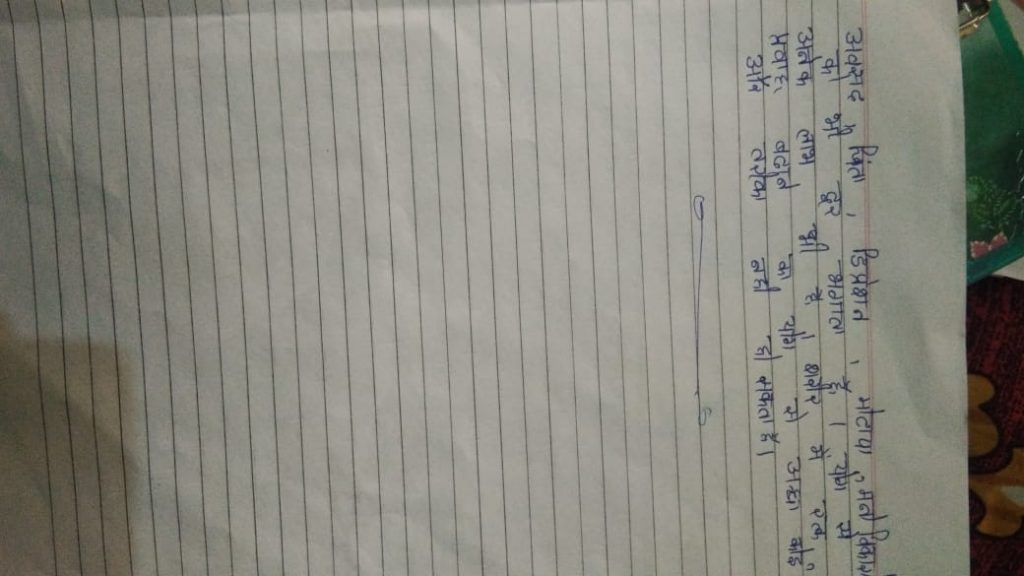 अवसाद, चिंता, डिप्रेशन, मोटापा, मनोविकार
को भी दूर भगाता है। योग से
अनेक लाभ भी है योग शरीर में रक्त
प्रवाह बढाने का योग से अच्छा कोई
और तरीका नही हो सकता है।